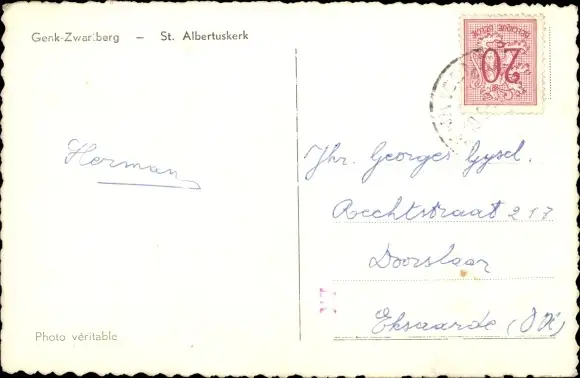 Genk-Zwartberg — St. Albertuskerk
BELGIQUE BELGIE
20
Herman
Jhr. Georges Gysel.
Rechtstraat 217
Doorslaar
Eksaarde (
Photo véritable